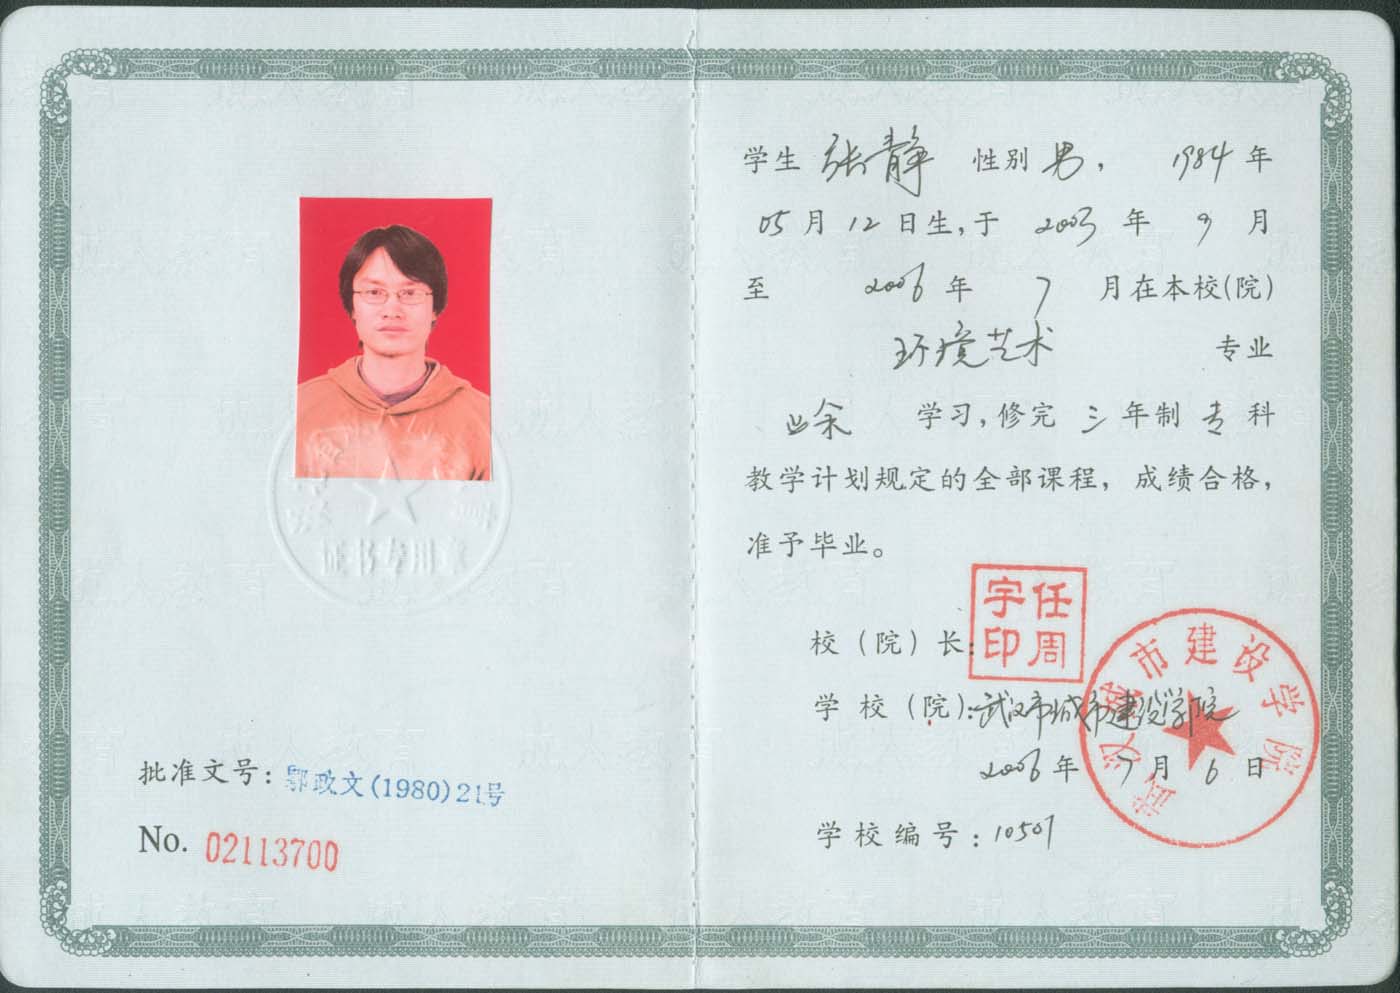 证书专用章
批准文号：鄂政文(1980)21号
No. 02113700
学生 张静 性别 男， 1984 年
05 月 12 日生，于 2003 年 9 月
至 2006 年 7 月在本校(院)
环境艺术 专业
业余 学习，修完 三 年制 专 科
教学计划规定的全部课程，成绩合格，
准予毕业。
校（院）长：
任周宇印
学校（院）：武汉市城市建设学院
武汉城市建设学院
2006 年 7 月 6 日
学校编号：10507